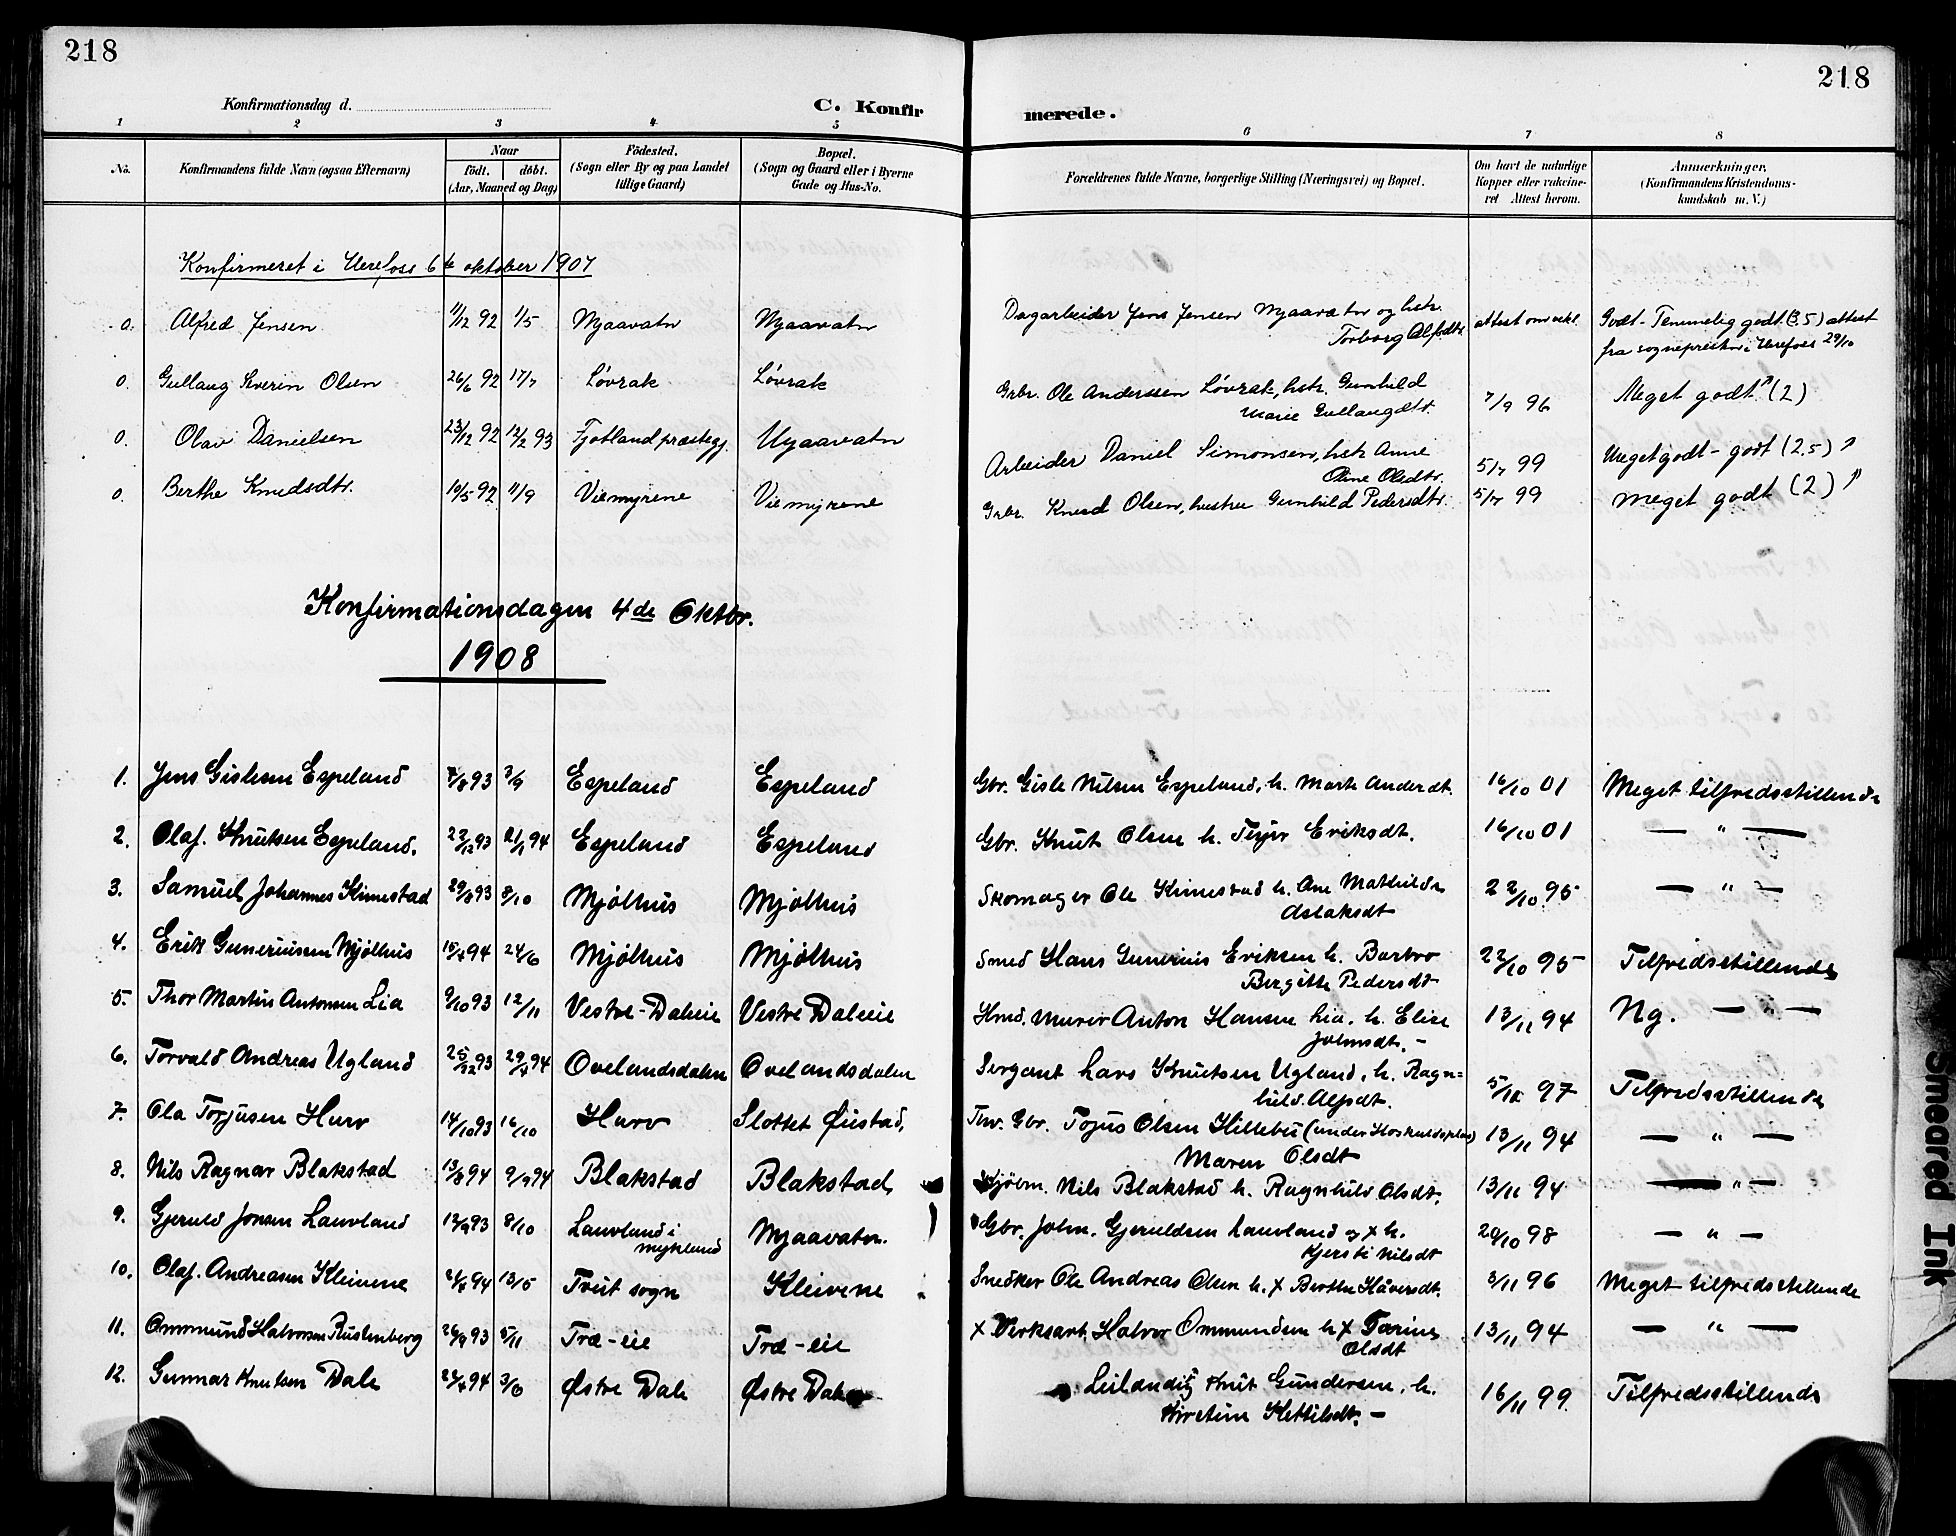 218
218
Konfirmationsdag d.
C. Konfir
merede.
1 2 3 4 5 6 7 8
No.
Konfirmandens fulde Navn (ogsaa Efternavn)
Naar
födt. döbt.
(Aar, Maaned og Dag)
Födested.
(Sogn eller By og paa Landet tillige Gaard)
Bopæl.
(Sogn og Gaard eller i Byerne Gade og Hus-No.
Forældrenes fulde Navne, borgerlige Stilling (Næringsvei) og Bopæl.
Om havt de naturlige Kopper eller vakcineret Attest herom.
Anmærkninger,
(Konfirmandens Kristendomskundskab m. V.)
Konfirmeret i Herefoss 6te oktober 1907
0. Alfred Jensen 11/12 92 1/5 Mjaavatn Mjaavatn Dagarbeider Jens Jensen Mjaavatn og hstr.
Torborg Alfsdtr. attest om vakc. Godt - Temmelig godt (3,5) attest
fra sogneprestn i Herefoss 29/10
0. Gullaug Severin Olsen 26/6 92 17/7 Løvrak Løvrak Grbr. Ole Anderssen Løvrak, hstr. Gunhild
Marie Gullaugdtr. 7/9 96 Meget godt " (2)
0. Olav Danielsen 23/12 92 12/2 93 Fjotland præstegj. Mjaavatn Arbeider Daniel Simonsen, hstr Anne
Oline Olsdtr. 5/7 99 Meget godt - godt (2,5) "
0. Berthe Knudsdtr. 10/5 92 11/9 Viemyrene Viemyrene Grbr. Knud Olsen, hustru Gunhild Pedersdtr. 5/7 99 meget godt (2) "
Konfirmationsdagen 4de Oktbr.
1908
1. Jens Gislesen Espeland 93 Espeland Espeland Gbr. Gisle Nilsen Espeland, h. Marte Andersdt. 16/10 01 Meget tilfredsstillende
2. Olaf Knutsen Espeland. 22/12 93 21/1 94 Espeland Espeland Gbr. Knut Olsen h. Eriksdt. 16/10 01 — " —
3. Samuel Johannes Kimestad 29/8 93 8/10 Mjölhus Mjölhus Skomager Ole Kimestad h. Ane Mathilde
Aslaksdt 22/10 95 — " —
4. Erik Guneriussen Mjölhus 15/4 94 24/6 Mjölhus Mjölhus Smed Hans Gunerius Eriksen h. Barbro
Bergitte Pedersdt 22/10 95 Tilfredsstillende
5. Thor Martin Antonsen Lia 9/10 93 12/11 Vestre-Daleeie Vestre Daleeie Hmd. Murer Anton Hansen Lia, h. Elise
Johnsdt. - 13/11 94 Ng. — " —
6. Torvald Andreas Ugland 25/12 93 29/4 94 Ovelandsdalen Ovelandsdalen Sergant Lars Knutsen Ugland, h. Ragn=
hild Alfsdt. 97 Tilfredsstillende
7. Ola Torjusen Hurv 14/10 93 16/10 Hurv Slottet Øiestad, Gbr. Tojus Olsen Hillebu (under Hoskuldsplas)
Maren Olsdt 13/11 94 — " —
8. Nils Ragnar Blakstad 13/8 94 9/9 94 Blakstad Blakstad Kjöbm. Nils Blakstad h. Ragnhild Olsdt. 13/11 94 — " —
9. Gjeruld Jonsen Lauvland 12/9 93 8/10 Lauvland i
Mykland Mjaavatn. Gbr. John. Gjeruldsen Lauvland og + h.
Kjersti Nilsdt 20/10 98 — " —
10. Olaf. Andreasen Kleivene 94 13/5 Tveit sogn Kleivene Snedker Ole Andreas Olsen h. + Berthe Håversdt. 3/11 96 Meget tilfredsstillende
11. Ommund Halvorsen Rustenberg 26/9 93 5/11 Træ-eie Træ-eie + Verksarb. Halvor Ommundsen h + Tarine
Olsdt 13/11 94 — " —
12. Gunnar Knutsen Dale 94 3/6 Østre Dale Østre Dale Leilending Knut Gundersen, h.
Kirstine Kettilsdt. - 16/11 99. Tilfredsstillende
Smeared Ink